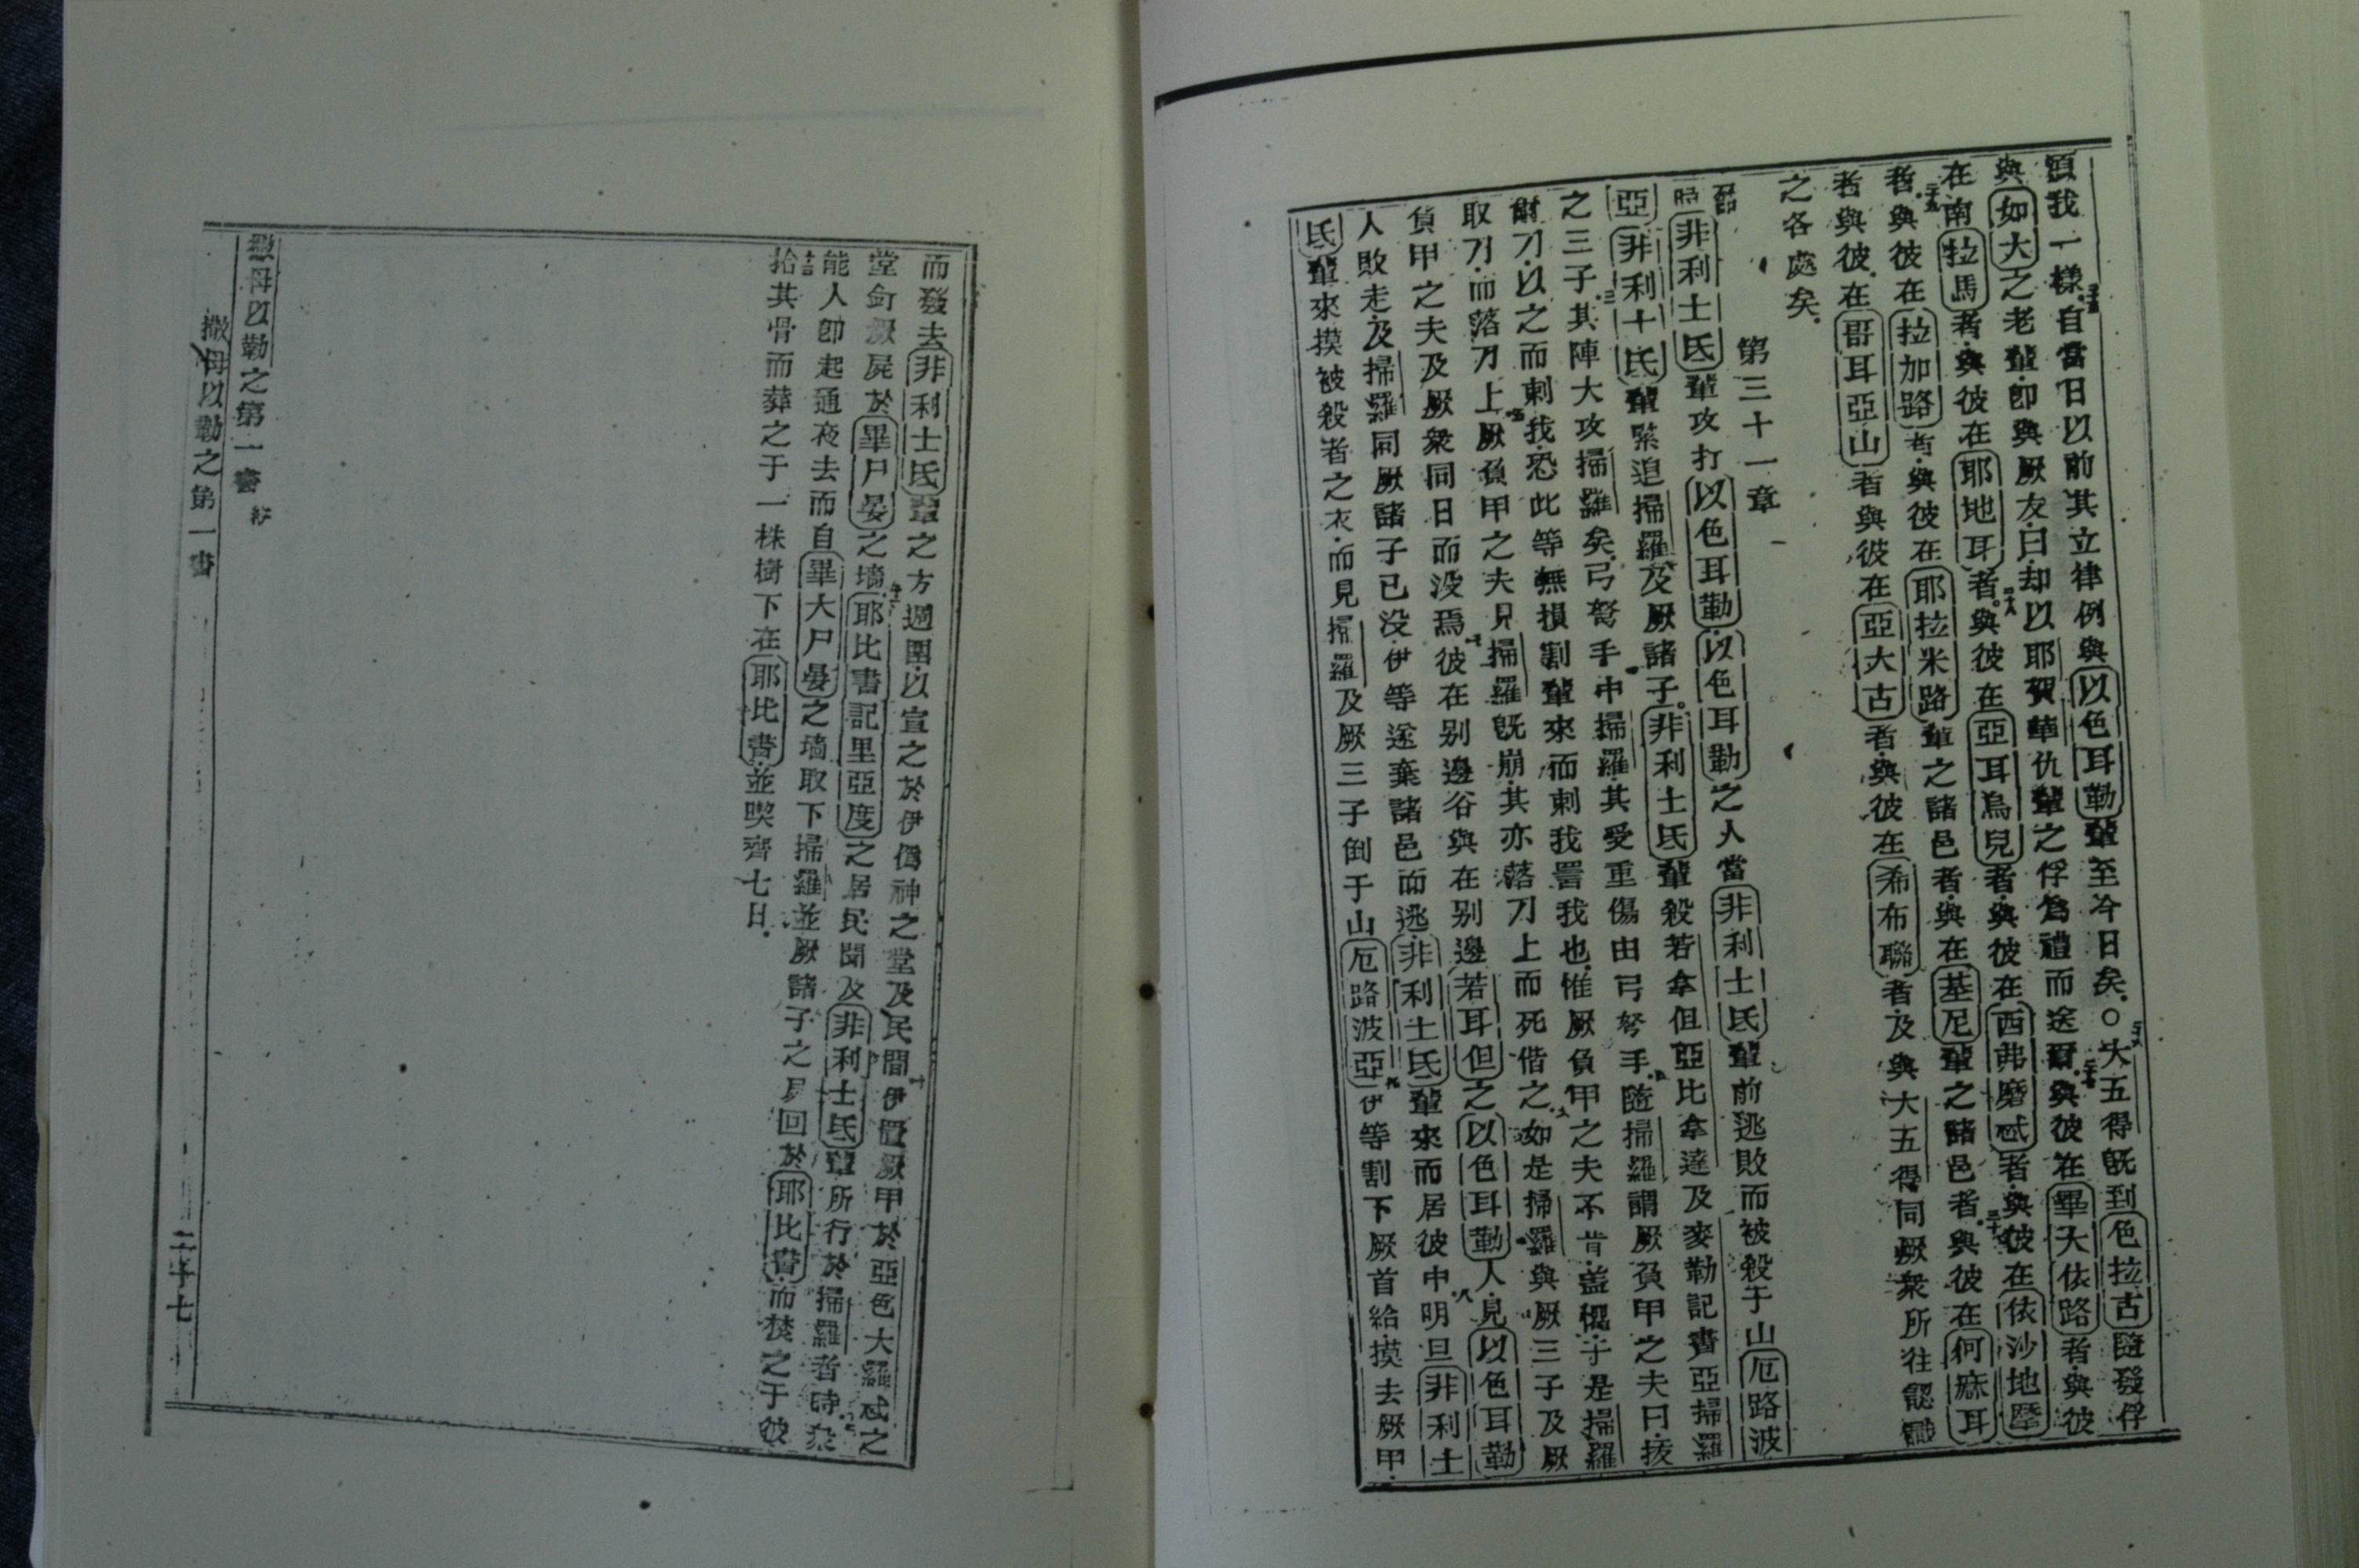 頭我一樣自當日以前其立律例與以色耳勒輩至今日矣○大五得既到色拉古隨發俘
與如大之老輩即與厥友曰却以耶賀華仇輩之俘爲禮而送爾與彼在畢大依路者與彼
在南拉馬者與彼在耶地耳者與彼在亞耳烏兒者與彼在西弗磨忒者與彼在依沙地摩
者與彼在拉加路者與彼在耶拉米路輩之諸邑者與在基尼輩之諸邑者與彼在何麻耳
者與彼在哥耳亞山者與彼在亞大古者與彼在希布聯者及與大五得同厥衆所往認識
之各處矣
第三十一章
時非利士氏輩攻打以色耳勒以色耳勒之人當非利士氏輩前逃敗而被殺于山厄路波
亞非利士氏輩緊追掃羅及厥諸子非利士氏輩殺若拿但亞比拿達及麥勒記書亞掃羅
之三子其陣大攻掃羅矣弓弩手中掃羅其受重傷由弓弩手隨掃羅謂厥負甲之夫曰拔
爾刀以之而刺我恐此等無損割輩來而刺我詈我也惟厥負甲之夫不肯蓋懼于是掃羅
取刀而落刀上厥負甲之夫見掃羅既崩其亦落刀上而死偕之如是掃羅與厥三子及厥
負甲之夫及厥衆同日而没焉彼在别邊谷與在别邊若耳但之以色耳勒人見以色耳勒
人敗走及掃羅同厥諸子已没伊等遂棄諸邑而逃非利士氏輩來而居彼中明旦非利士
氏輩來摸被殺者之衣而見掃羅及厥三子倒于山厄路波亞伊等割下厥首給摸去厥甲
而發去非利士氏輩之方週圍以宣之於伊偶神之堂及民間伊置厥甲於亞色大羅忒之
堂釘厥屍於畢尸晏之墻耶比書記里亞度之居民聞及非利士氏輩所行於掃羅者時衆
能人即起通夜去而自畢大尸晏之墻取下掃羅並厥諸子之屍回於耶比書而焚之于彼
拾其骨而葬之于一株樹下在耶比書並喫齊七日
撒母以勒之第一書 終
撒母以勒之第一書 二十七